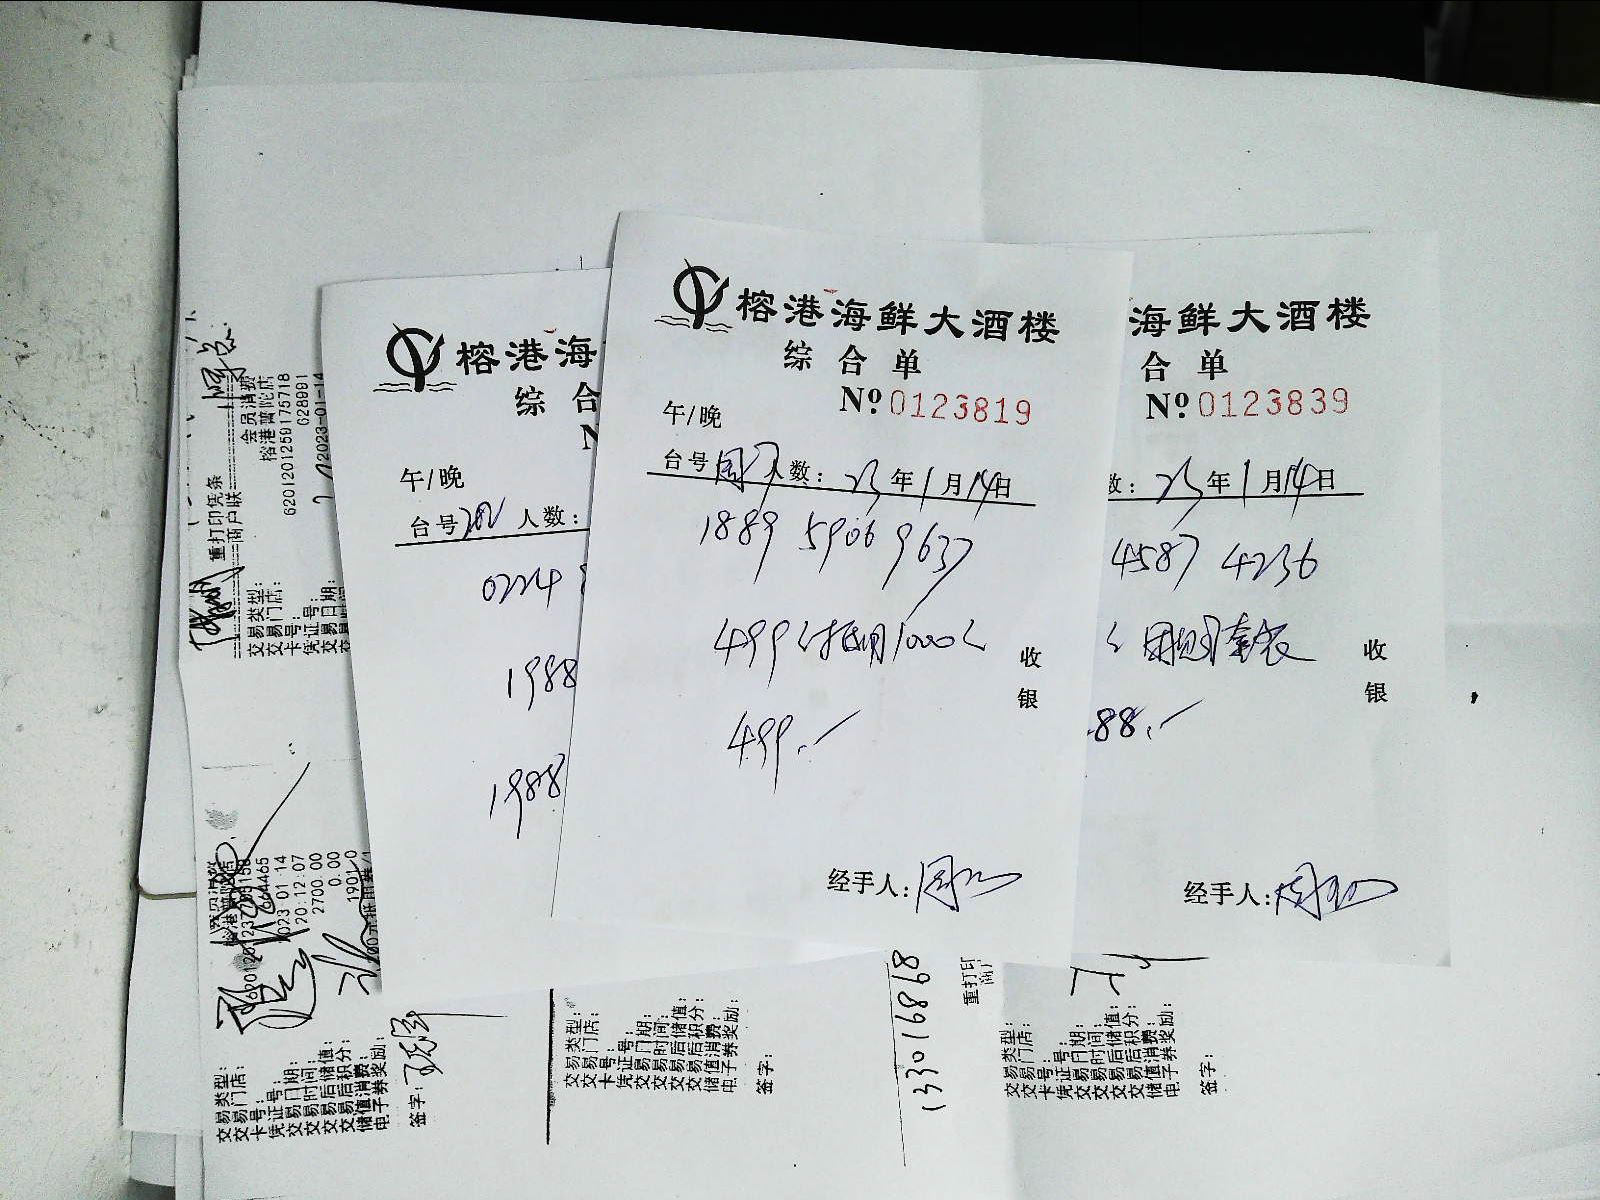 榕港海
综合
N
午/晚
台号202 人数:
0224
1988
1988
榕港海鲜大酒楼
综合单
Nº 0123819
午/晚
台号 人数: 23年1月14日
1889 5906 9637
499 1000
499.-
收
银
经手人:
海鲜大酒楼
合单
Nº 0123839
数: 23年1月14日
4587 4236
套
收
银
88.-
经手人:
重打印凭条
商户联
交易类型: 会员消费
交易门店: 榕港普陀店
卡号: 6201201259175718
凭证号: G28901
交易日期: 2023-01-14
交易类型:
交易门店:
卡号:
凭证号: 664465
交易日期: 2023 01 14
交易时间: 20:12:07
交易后储值: 2700.00
交易后积分: 0.00
储值消费: 1901.0
电子券奖励:
签字:
交易类型:
交易门店:
卡号:
凭证号:
交易日期:
交易时间:
交易后储值:
交易后积分:
储值消费:
电子券奖励:
签字:
133016868
重打印
商户
交易类型:
交易门店:
卡号:
凭证号:
交易日期:
交易时间:
交易后储值:
交易后积分:
储值消费:
电子券奖励:
签字: